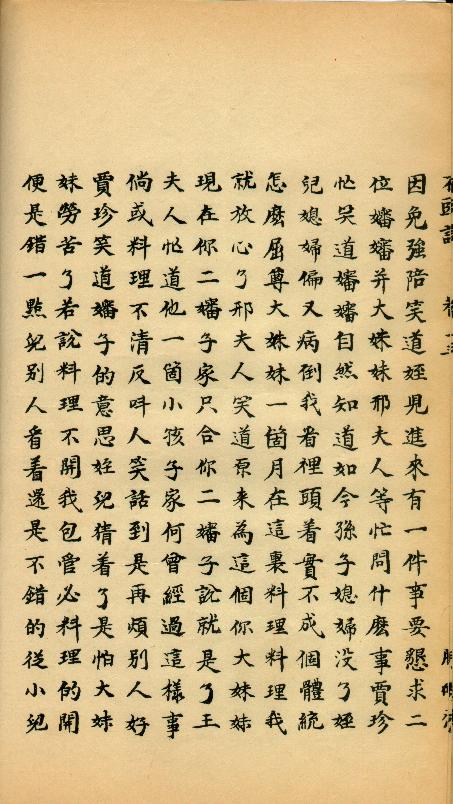 因免強陪笑道姪児進來有一件事要懇求二
位嬸嬸并大妹妹邢夫人等忙問什麽事賈珍
忙笑道嬸嬸自然知道如今孫子媳婦没了姪
兒媳婦偏又病倒我看裡頭着實不成個體統
怎麽屈尊大妹妹一箇月在這裏料理料理我
就放心了邢夫人笑道原来為這個你大妹妹
現在你二嬸子家只合你二嬸子說就是了王
夫人忙道他一箇小孩子家何曾經過這樣事
倘或料理不清反呌人笑話到是再煩别人好
賈珍笑道嬸子的意思姪兒猜着了是怕大妹
妹勞苦了若說料理不開我包管必料理的開
便是錯一㸃兒别人看着還是不錯的從小兒